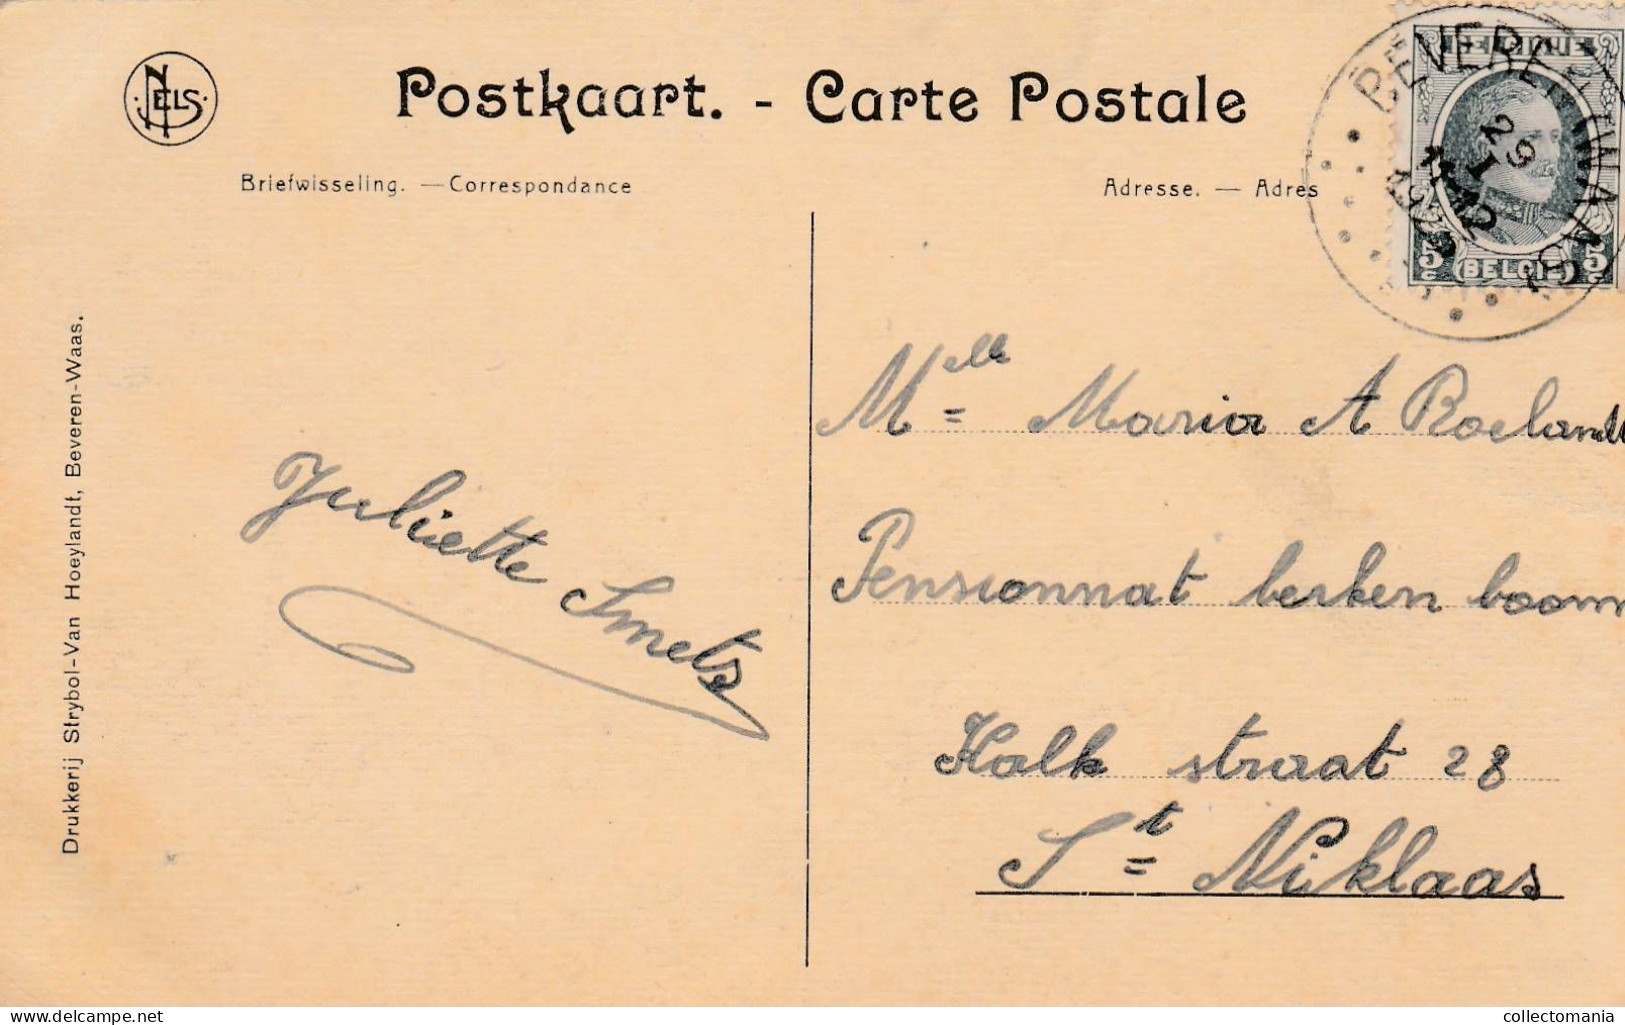 NELS
Postkaart. - Carte Postale
Briefwisseling. — Correspondance
Adresse. — Adres
BELGIQUE
BEVEREN WAAS
29
I
12
5c (BELGIË) 5c
Drukkerij Strybol-Van Hoeylandt, Beveren-Waas.
Juliette Smets
Melle Maria A Roelandt
Pensionnat berken boom
Kalk straat 28
St Niklaas
www.delcampe.net
collectomania